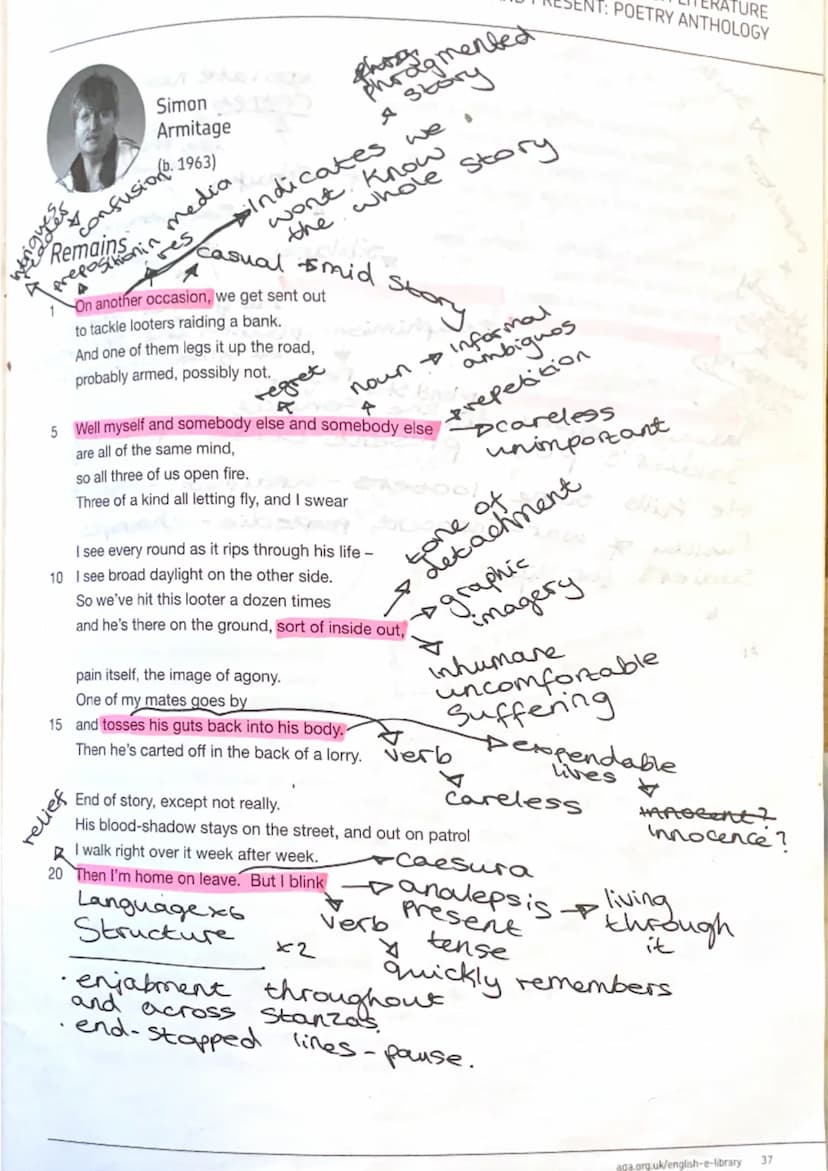 LITERATURE
PRESENT: POETRY ANTHOLOGY
phragmented
story
Simon
Armitage
(b. 1963)
Indicates we
wont know
the whole story
confusion
intrigues
reader
Remains
preposition
in media
res
casual → mid story
1 On another occasion, we get sent out
to tackle looters raiding a bank.
And one of them legs it up the road,
probably armed, possibly not.
regret
noun → informal
ambiguos
repetition
5 Well myself and somebody else and somebody else
careless
unimportant
are all of the same mind,
so all three of us open fire.
Three of a kind all letting fly, and I swear
tone of
detachment
I see every round as it rips through his life –
10 I see broad daylight on the other side.
So we’ve hit this looter a dozen times
and he’s there on the ground, sort of inside out,
graphic
imagery
inhumane
uncomfortable
suffering
pain itself, the image of agony.
One of my mates goes by
15 and tosses his guts back into his body.
Then he’s carted off in the back of a lorry.
verb
careless
expendable
lives
innocent?
innocence?
relief
End of story, except not really.
His blood-shadow stays on the street, and out on patrol
I walk right over it week after week.
20 Then I’m home on leave. But I blink
caesura
analepsis → living
through
it
present
tense
verb
quickly remembers
Language x6
Structure x2
· enjabment throughout
and across stanzas.
· end-stapped lines - pause.
aqa.org.uk/english-e-library 37